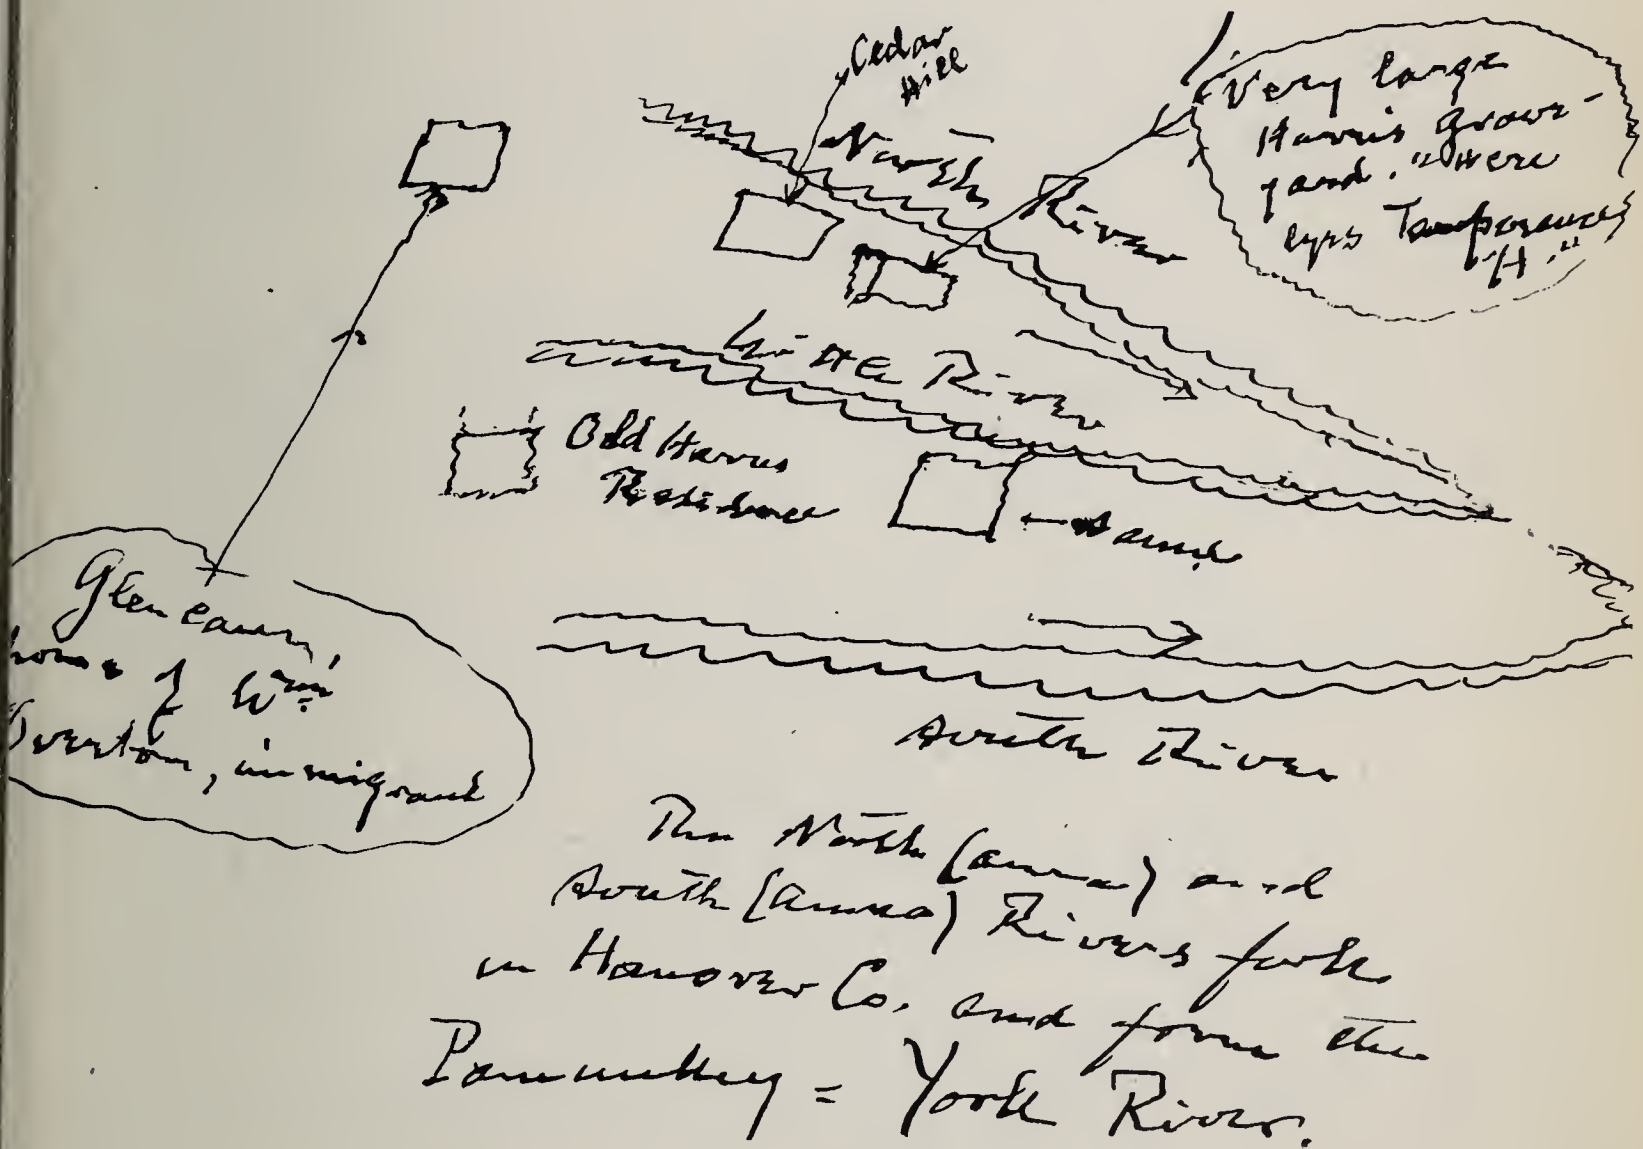 Cedar
Hill
Very large
Harris Grave-
yard. "Here
lyes Temperance
H."
North River
Little River
Old Harris
Residence
Glencairn,
home of Wm
Overton, immigrant
South River
The North (anna) and
South (Anna) Rivers fork
in Hanover Co. and form the
Pamunkey = York River.